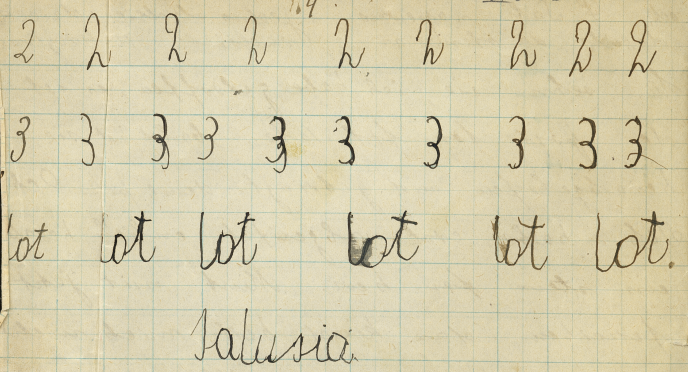 2 2 2 2 2 2 2 2 2
3 3 3 3 3 3 3 3 3 3
lot lot lot lot lot lot.